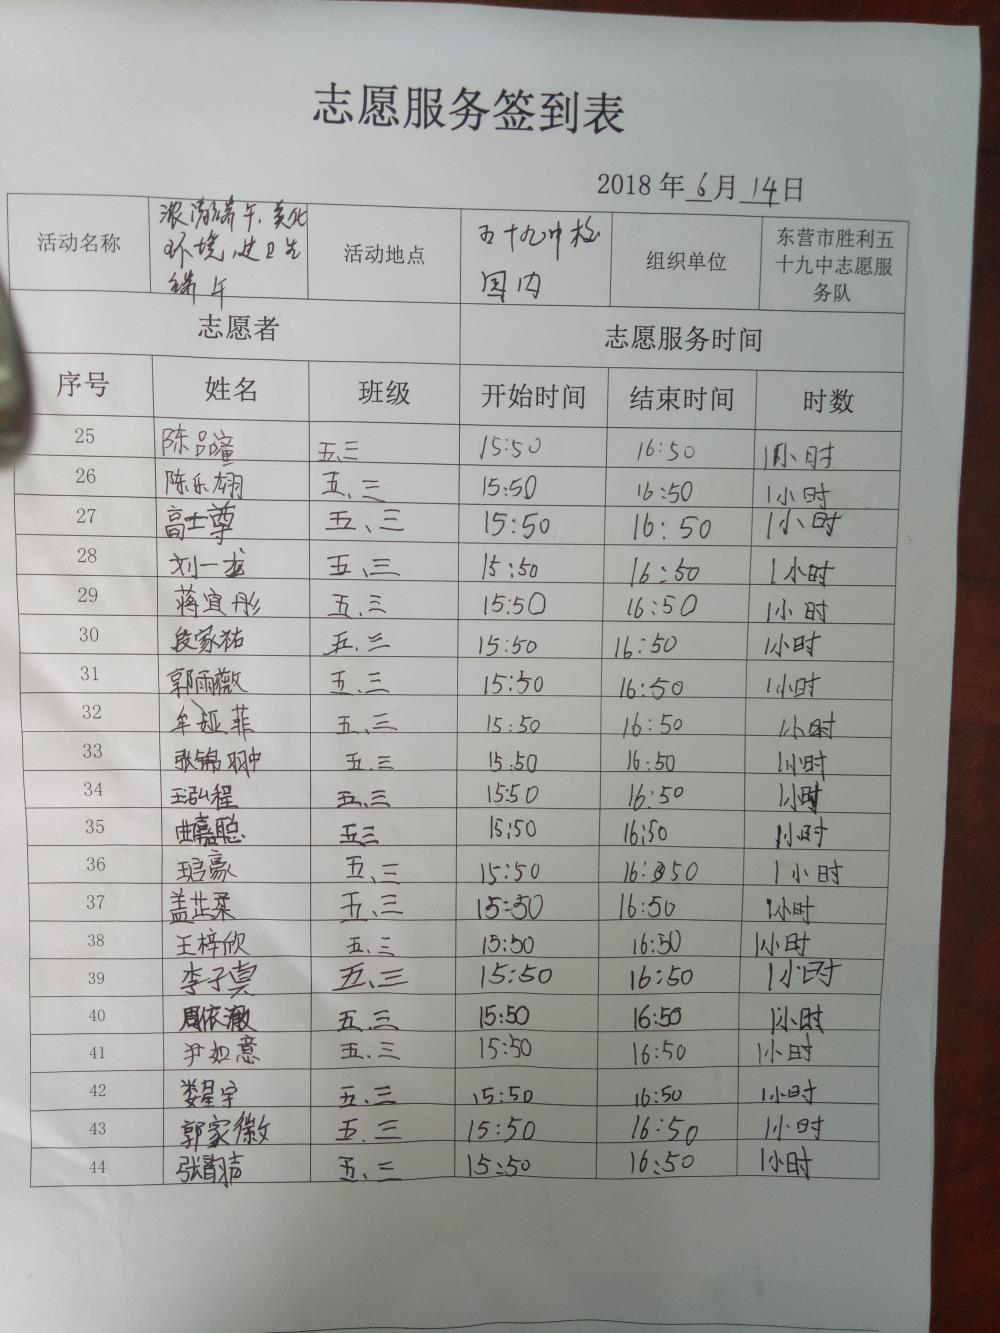 志愿服务签到表
2018年6月14日
活动名称 浓情端午.美化
环境,过卫生
端午
活动地点 五十九中校
园内
组织单位 东营市胜利五
十九中志愿服
务队
志愿者 志愿服务时间
序号 姓名 班级 开始时间 结束时间 时数
25 陈品潼 五.三 15:50 16:50 1小时
26 陈乐翊 五、三 15:50 16:50 1小时
27 高士尊 五、三 15:50 16:50 1小时
28 刘一龙 五、三 15:50 16:50 1小时
29 蒋宜彤 五.三 15:50 16:50 1小时
30 段家祐 五.三 15:50 16:50 1小时
31 郭雨薇 五.三 15:50 16:50 1小时
32 牟娅菲 五、三 15:50 16:50 1小时
33 张锦翀 五.三 15:50 16:50 1小时
34 王弘程 五、三 15:50 16:50 1小时
35 曲嘉聪 五三 15:50 16:50 1小时
36 豪 五、三 15:50 16:50 1小时
37 盖芷柔 五、三 15:50 16:50 1小时
38 王梓欣 五.三 15:50 16:50 1小时
39 李子真 五、三 15:50 16:50 1小时
40 周依澈 五、三 15:50 16:50 1小时
41 尹如意 五、三 15:50 16:50 1小时
42 娄星宇 五、三 15:50 16:50 1小时
43 郭家徽 五、三 15:50 16:50 1小时
44 张 五、三 15:50 16:50 1小时